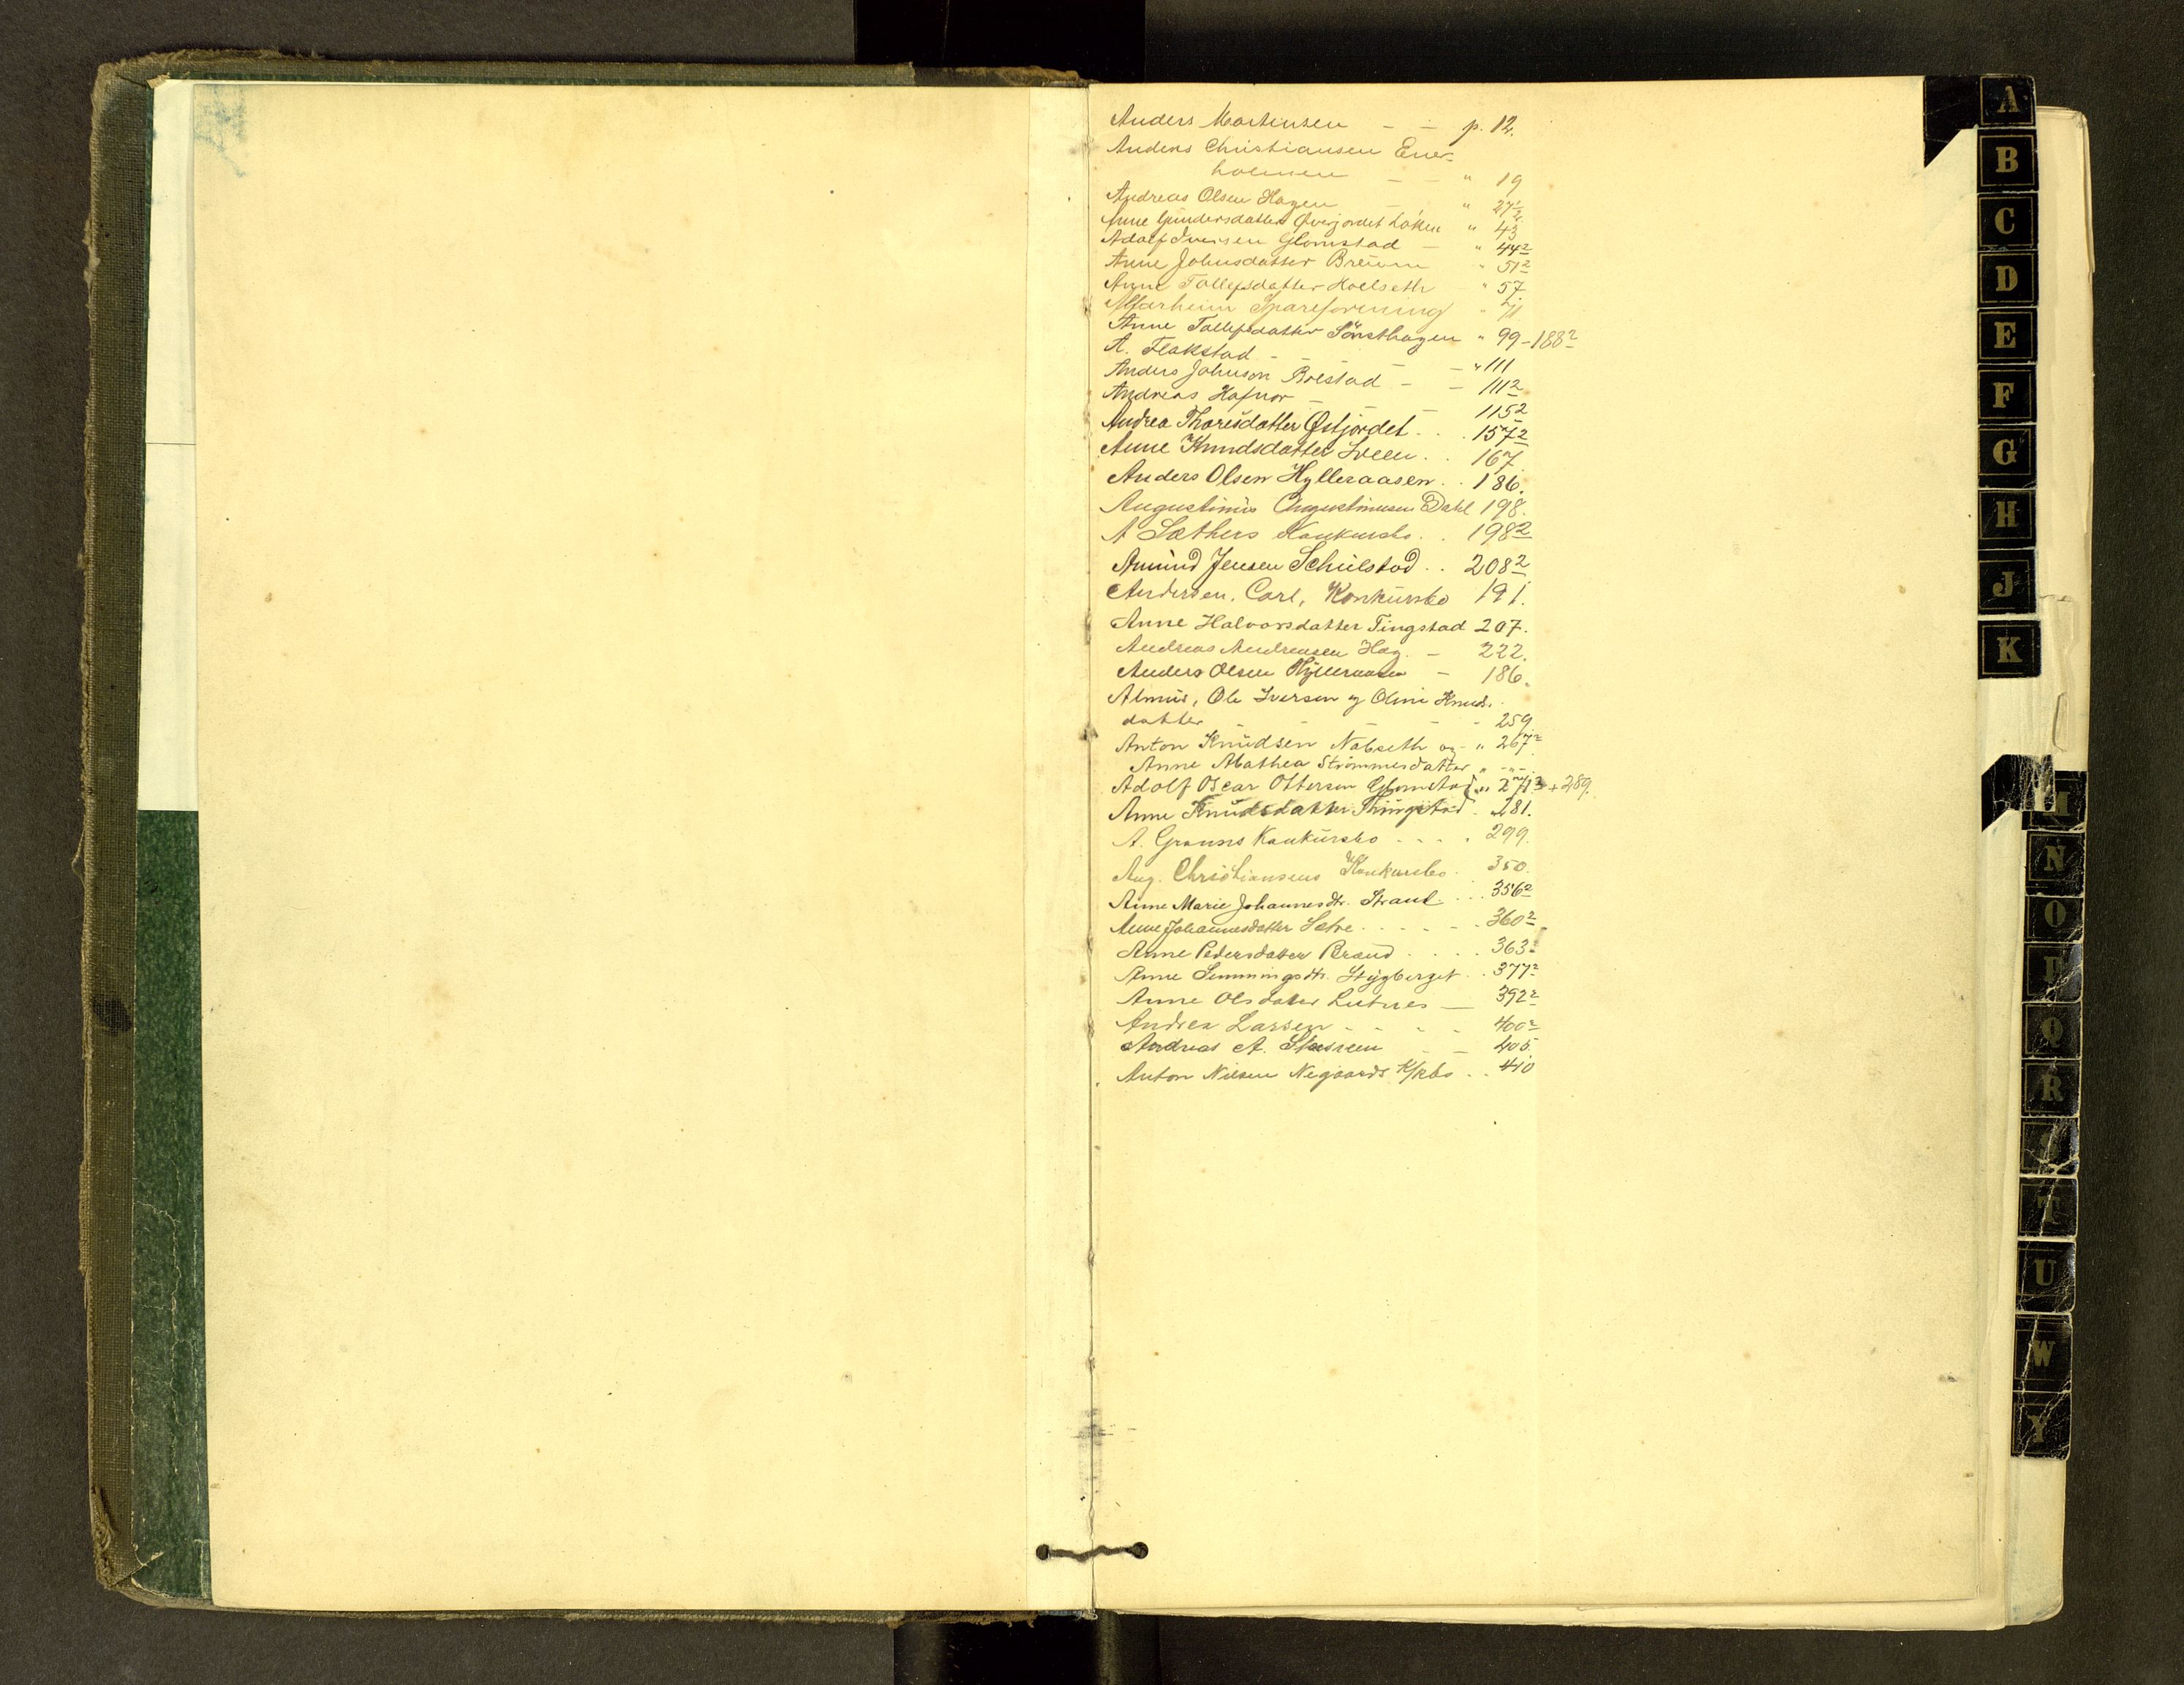 Anders Martinsen - - p. 12.
Anders Christiansen Ener-
holmen - - " 19
Andreas Olsen Hagen - " 27 1/2
Anne Gundersdatter Øvrejordet Løken " 43
Adolf Iversen Glomstad - " 44 2
Anne Johnsdatter Breum " 51 2
Anne Tollefsdatter Holseth " 57
Alfarheim Spareforening " 71
Anne Tollefsdatter Sønsthagen " 99-188 2
A. Flakstad - - - - " 111
Anders Johnson Bolstad - - 111 2
Andreas Hafnor - - - 115 2
Andrea Thoresdatter Østjordet . . 157 2
Anne Knudsdatter Sveen . . 167.
Anders Olsen Hylleraasen . . 186.
Augustinus Augustinusen Dahl 198.
A Sæthers Konkursbo . . 198 2
Amund Jensen Schulstad . . 208 2
Andersen, Carl, Konkursbo 191.
Anne Halvorsdatter Tingstad 207.
Andreas Andreasen Hag. - 222.
Anders Olsen Hylleraasen - 186.
Almus, Ole Iversen og Oline Knuds-
datter - - - - - 259
Anton Knudsen Nabseth og - " 267 2
Anne Mathea Strømmesdatter " - " -
Adolf Oscar Ottersen Glomstad " 271 2 + 289.
Anne Knudsdatter Thingstad . 281.
A. Granns Konkursbo . . . . 299.
Aug. Christiansens Konkursbo . 350.
Anne Marie Johannesdtr. Strand . . . 356 2
Anne Johannesdatter Sætre . . . . . . 360 2
Anne Pedersdatter Braud . . . . 363 2
Anne Simmingsdtr. Stygberget . . 377 2
Anne Olsdatter Lutnes — 392 2
Andrea Larsen - - - - 400 2
Andreas A. - - 405
Anton Nilsen Negaards K/kbo . . 410
A
B
C
D
E
F
G
H
J
K
M
N
O
P
Q
R
S
T
U
W
Y